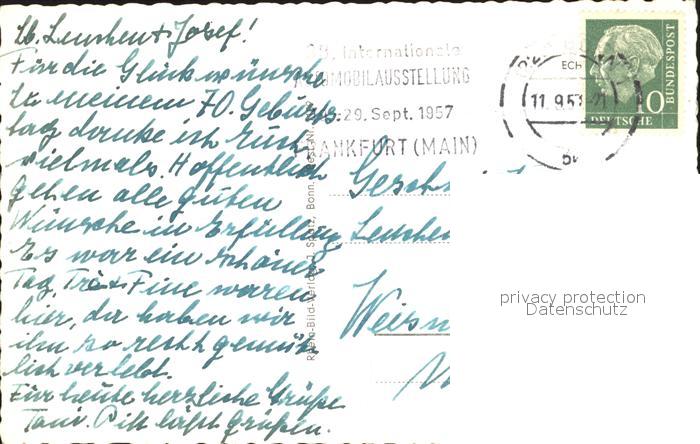 Lb. Lenchen + Josef!
Für die Glückwünsche
zu meinem 70. Geburts-
tag danke ich Euch
vielmals. Hoffentlich
gehen alle guten
Wünsche in Erfüllung
Es war ein schöner
Tag, + Fine waren
hier, da haben wir
ihn so recht gemüt-
lich verlebt.
Für heute herzliche Grüße
läßt grüßen.
Internationale
AUTOMOBILAUSSTELLUNG
29. Sept. 1957
FRANKFURT (MAIN)
ECH
11.9.57-21
DEUTSCHE
BUNDESPOST
10
Rhein-Bild-Verlag J. Spatz, Bonn
Gesch
Lenchen
Weism
privacy protection
Datenschutz